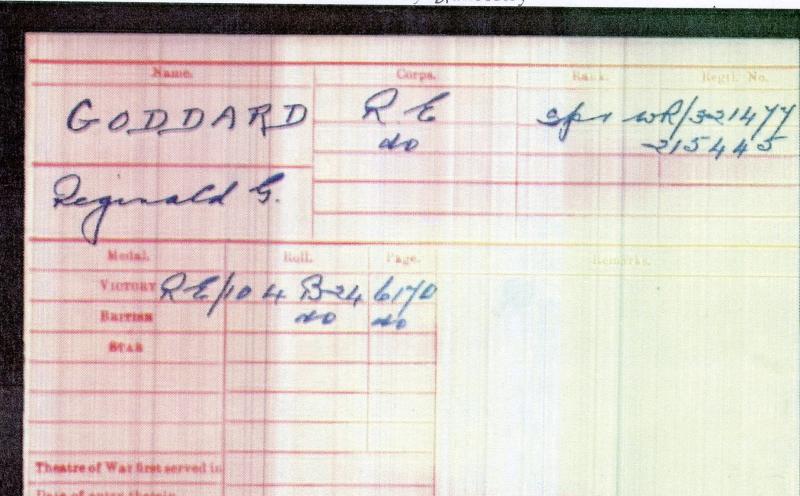 Name. Corps. Rank. Regtl. No.
GODDARD R E Spr WR/321477
do 215445
Reginald G.
Medal. Roll. Page. Remarks.
VICTORY RE/104 B24 6170
BRITISH do do
STAR
Theatre of War first served in
Date of entry therein